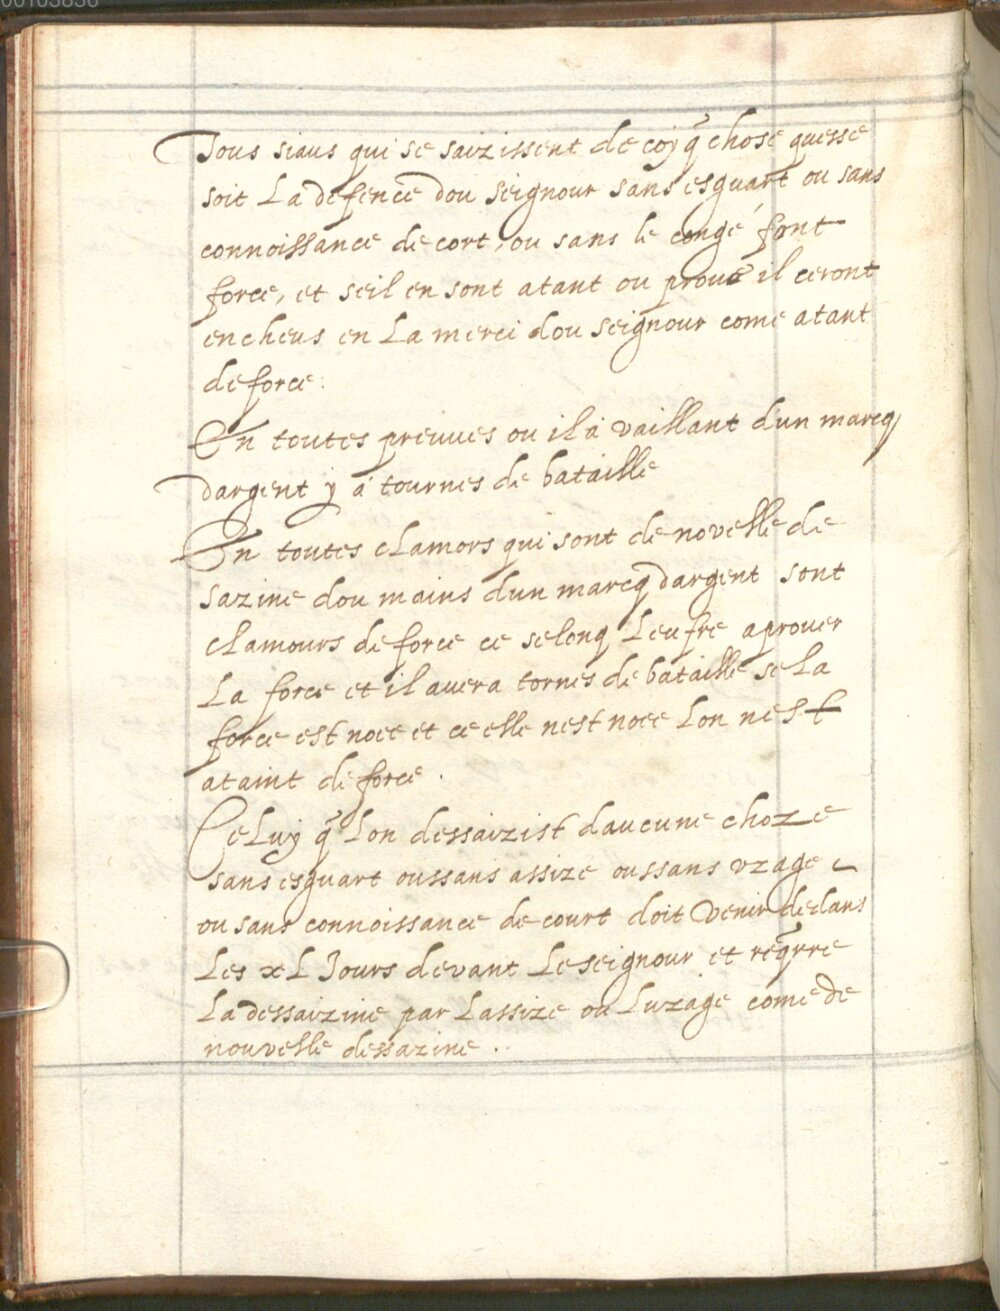 00103836
Tous siaus qui se saizissent de coy q̃ chose quesse
soit La defence dou seignour sans esguart ou sans
connoissance de cort, ou sans le congé font
force, et seil en sont atant ou prové il ceront
encheus en La merci dou seignour come atant
de force:
En toutes preuves ou il a vaillant dun marcq
dargent y a tournes de bataille
En toutes clamors qui sont de novelle de
sazine dou mains dun marcq dargent sont
clamours de force ce selonq Leufre aprover
La force et il avera tornes de bataille se la
force est noee et ce elle nest noee Lon nest
ataint de force.
Celuy q̃ Lon dessaizist daucune choze
sans esguart oussans assize oussans vzage
ou sans connoissance de court doit venir dedans
Les xL Jours devant Le seignour et reqrre
La dessaizine par Lassize ou Luzage come de
nouvelle dessazine..